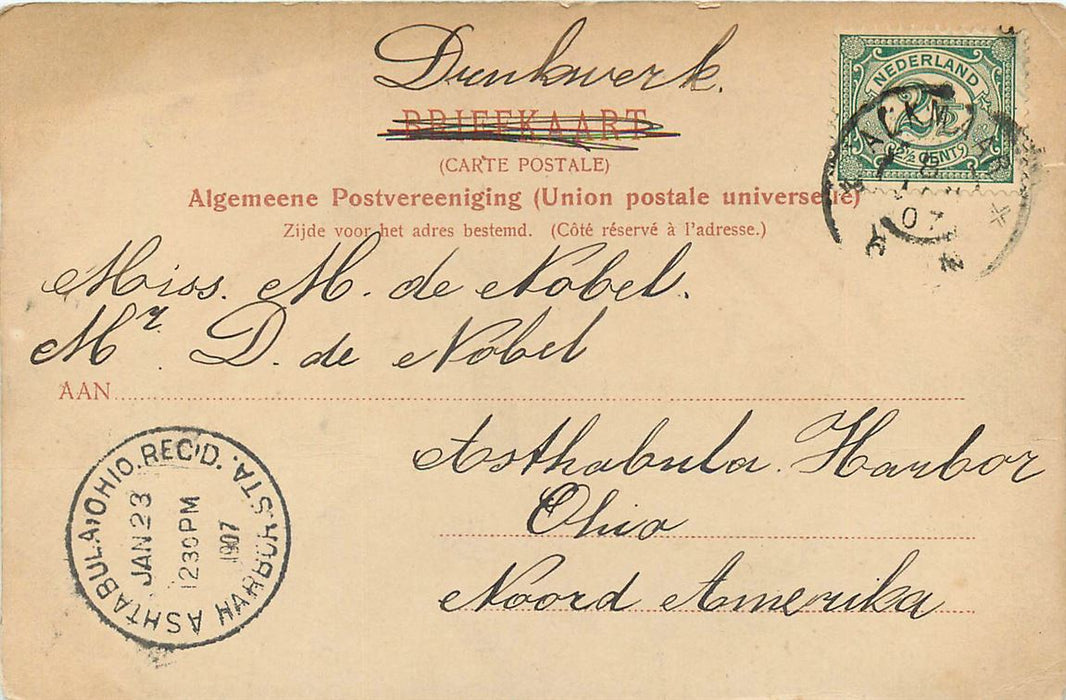 Drukwerk.
BRIEFKAART
(CARTE POSTALE)
Algemeene Postvereeniging (Union postale universelle)
Zijde voor het adres bestemd. (Côté réservé à l'adresse.)
NEDERLAND
2½
2½ CENT
ALKMAAR
07
Miss. M. de Nobel.
Mr. D. de Nobel
AAN
Asthabula Harbor
Ohio
Noord Amerika
ASHTABULA, OHIO. REC'D. HARBOR STA.
JAN 23
1230 PM
1907